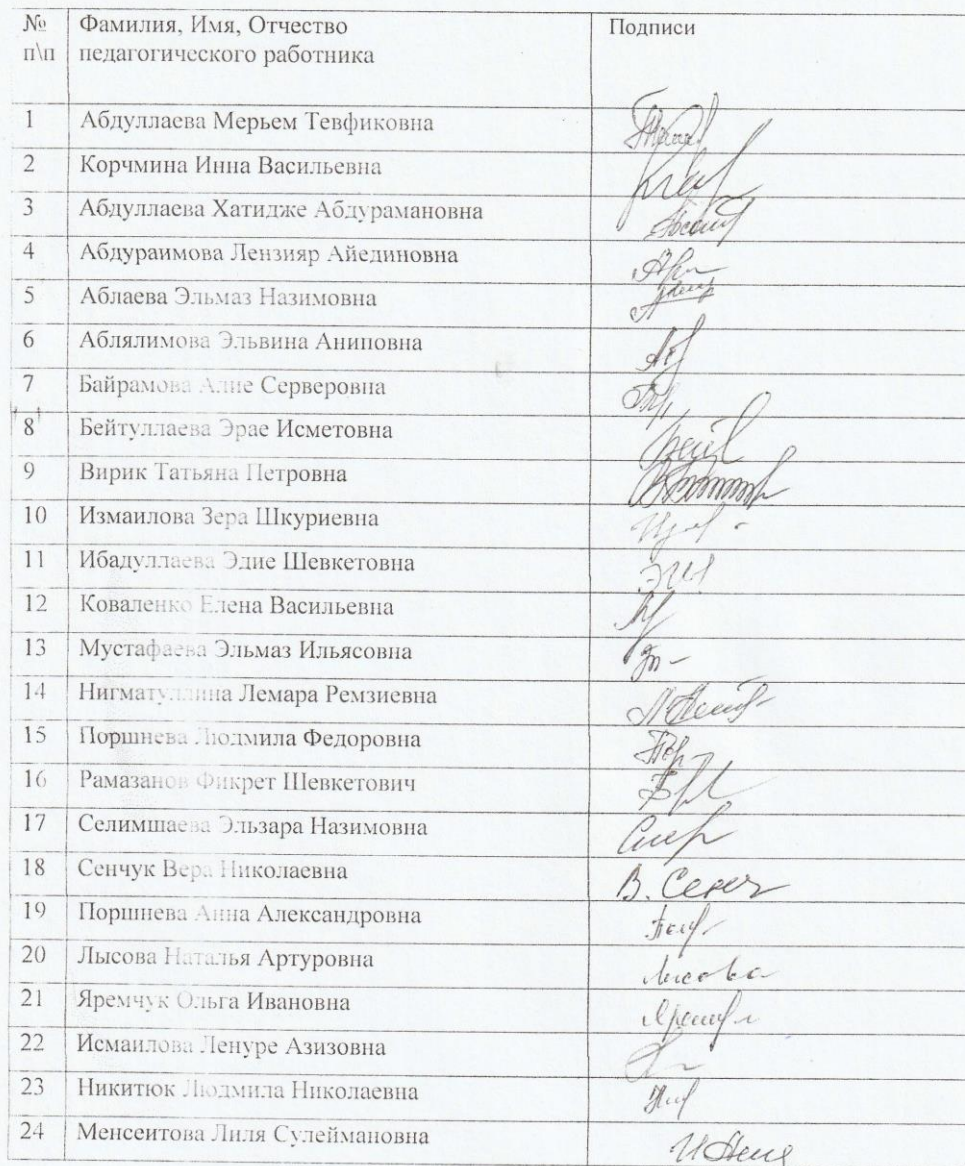 № Фамилия, Имя, Отчество Подписи
п\п педагогического работника
1 Абдуллаева Мерьем Тевфиковна
2 Корчмина Инна Васильевна
3 Абдуллаева Хатидже Абдурамановна
4 Абдураимова Лензияр Айединовна
5 Аблаева Эльмаз Назимовна
6 Аблялимова Эльвина Аниповна
7 Байрамова Алие Серверовна
8 Бейтуллаева Эрае Исметовна
9 Вирик Татьяна Петровна
10 Измаилова Зера Шкуриевна
11 Ибадуллаева Эдие Шевкетовна
12 Коваленко Елена Васильевна
13 Мустафаева Эльмаз Ильясовна
14 Нигматуллина Лемара Ремзиевна
15 Поршнева Людмила Федоровна
16 Рамазанов Фикрет Шевкетович
17 Селимшаева Эльзара Назимовна
18 Сенчук Вера Николаевна В. Сенч
19 Поршнева Анна Александровна
20 Лысова Наталья Артуровна Лысова
21 Яремчук Ольга Ивановна
22 Исмаилова Ленуре Азизовна
23 Никитюк Людмила Николаевна
24 Менсеитова Лиля Сулеймановна